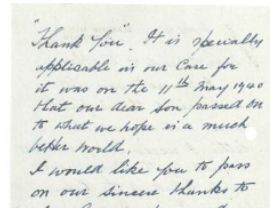 "Thank You". It is specially
applicable in our Case for
it was on the 11th May 1940
that our dear Son passed on
to what we hope is a much
better World.
I would like you to pass
on our sincere thanks to